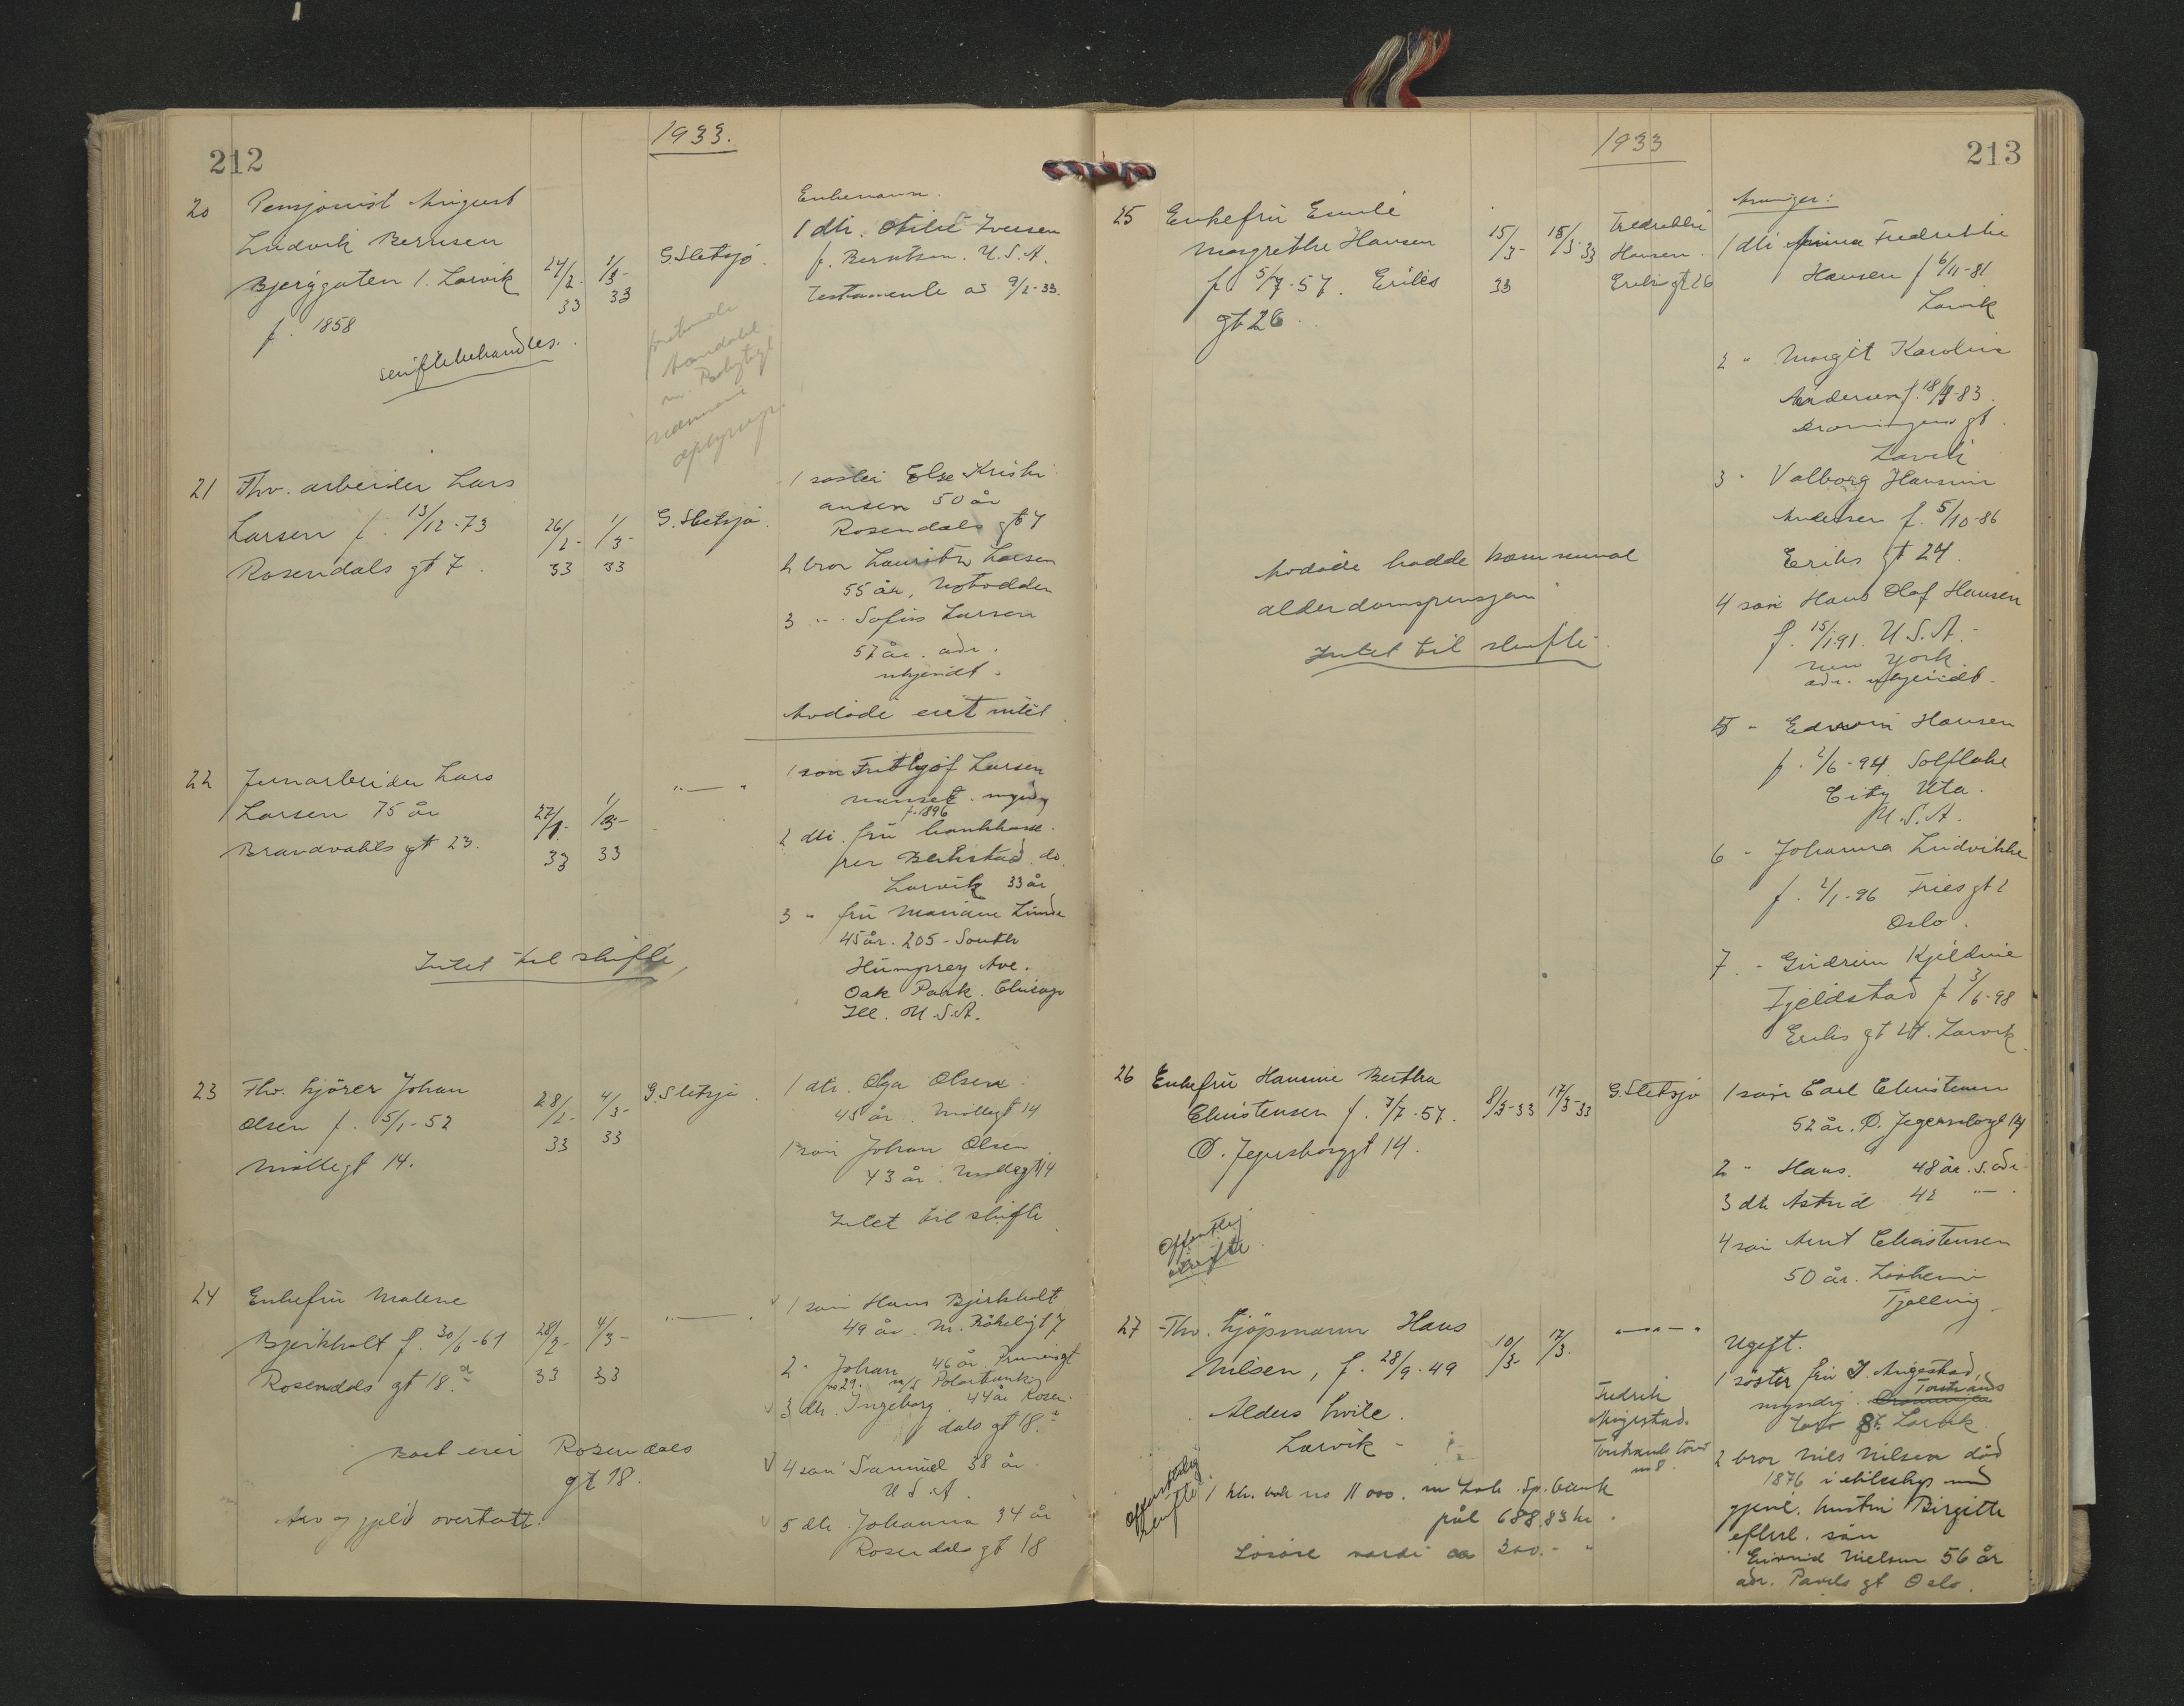 212
1933.
20 Pensjonist August
Ludvik Berntsen
Bjerggaten 1. Larvik
f. 1858
24/2- 33
1/3- 33
G. Sletsjø.
Enkemann.
1 dtr. Iversen
f. Berntsen. U.S.A.
Testamente av 9/2-33.
skiftebehandles.
21 Fhv. arbeider Lars
Larsen f. 13/12-73
Rosendals gt 7.
26/2- 33
1/3- 33
G. Sletsjø.
1 søster Else Kristi
ansen 50 år
Rosendals gt 7
2 bror Lauritz Larsen
55 år, Notodden
3 " Sofus Larsen
57 år. adr.
ukjendt.
Avdøde eiet intet
22 Jernarbeider Lars
Larsen 75 år
Brandvakts gt 23.
27/ 33
1/3- 33
" — "
1 søn Frithjof Larsen
myndig
f. 1896
2 dtr. fru bankkasse
rer do.
Larvik 33 år
3 " fru Mariane Linde
45 år. 205 - South
Humprey Ave.
Oak Park. Chicago
Ill. U.S.A.
Intet til skifte,
23 Fhv. kjører Johan
Olsen f. 5/1-52
Møllegt 14.
28/2- 33
4/3- 33
G. Sletsjø.
1 dtr. Olga Olsen
45 år. Møllegt 14
1 søn Johan Olsen
43 år. Møllegt 14
Intet til skifte
24 Enkefru Malene
Bjerkholt f. 30/6-61
Rosendals gt 18.a
28/2- 33
4/3- 33
" — "
1 søn Hans Bjerkholt
49 år. 7
2 " Johan 46 år.
no 29. m/s
3 dtr. Ingeborg. 44 år Rosen-
dals gt 18.a
4 søn Samuel 38 år.
U S A.
5 dtr. Johanna 34 år
Rosendals gt 18
Boet eier Rosendals
gt 18.
Arv og gjeld overtatt.
213
1933
25 Enkefru Emilie
Margrethe Hansen
f 5/7-57. Eriks
gt 26.
15/3- 33
18/3-33
Fredrikke
Hansen.
Eriks gt 26
Arvinger:
1 dtr. Anna Fredrikke
Hansen f 6/11-81
Larvik
2 " Margit Karoline
Andersen f. 18/9-83.
Dronningens gt.
Larvik
3 " Valborg Hansine
Andersen f. 5/10-86
Eriks gt 24.
4 søn Hans Olaf Hansen
f. 15/1 91. U.S.A.-
New York.
adr. ukjendt.
5 - Edwin Hansen
f. 2/6-94. Saltlake
City Uta.
U.S.A.
6 - Johanna Ludvikke
f. 2/1-96 Fries gt 2
Oslo.
7 - Gudrun Kjeldine
Fjeldstad f 3/6-98
Eriks gt 24. Larvik.
Avdøde hadde kommunal
alderdomspensjon
Intet til skifte
26 Enkefru Hansine Bertha
Christensen f. 7/7-57.
Ø. Jegersborggt 14.
8/3-33
17/3-33
G. Sletsjø
1 søn Carl Christensen
52 år. Ø. Jegersborggt 14
2 " Hans. 48 år. s. adr.
3 dtr Astrid 42 " — "
4 søn Arnt Christensen
50 år.
Tjølling.
Offentlig
skifte.
27 Fhv. kjøpmann Hans
Nilsen, f. 28/9-49
Alders hvile.
Larvik -
10/3-
17/3.
— " — "
Fredrik
Augestad.
Torstrands torv
no 8.
Ugift.
1 søster fru J. Augestad,
myndig. Torstrands
torv 8. Larvik.
2 bror Nils Nilsen død
1876 i ekteskap med
gjenl. hustru Birgitte
efterl. søn
Eivind Nielsen 56 år
adr. Pavels gt Oslo.
Offentlig
skifte
1 bk. bok no 11000. m Larv. Sp.bank
pål 688,83 kr.
Løsøre verdi ca 300.- "